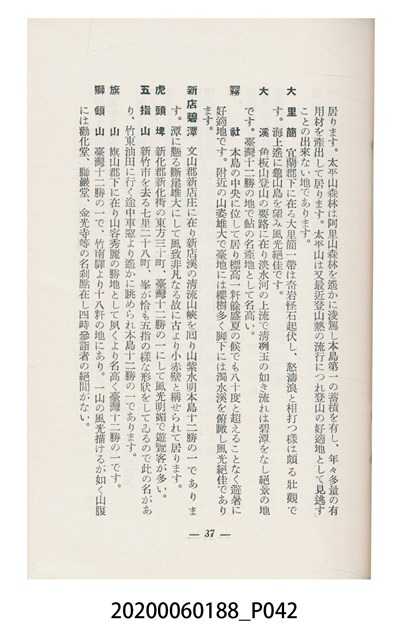 居ります。太平山森林は阿里山森林を遙かに凌駕し本島第一の蓄積を有し、年々多量の有
用材を產出して居ります。太平山は又最近登山熱の流行につれ登山の好適地として見逃す
ことの出來ない地であります。
大里簡　宜蘭郡下に在る大里簡一帶は奇岩怪石起伏し、怒濤浪と相打つ樣は頗る壯觀で
す。海上遙に龜山島を望み風光絕佳です。
大溪　角板山登山の要路に在り淡水河の上流で淸洌玉の如き流れは碧潭をなし絕景の地
です。臺灣十二勝の地で鮎の名產地として名高い。
霧社　本島の中央に位して居り標高一粁餘盛夏の候でも八十度と超えることなく避暑に
好適地です。附近の山姿雄大で臺地には櫻樹多く脚下には濁水溪を俯瞰し風光絕佳であり
ます。
新店碧潭　文山郡新店庄に在り新店溪の淸流山峽を囘り山紫水明本島十二勝の一でありま
す。潭に懸る斷崖雄大にして風致非凡なる故に古より小赤壁と稱せられて居ります。
虎頭埤　新化郡新化街の東方三十町、臺灣十二勝の一にして風光明媚で遊覽客が多い。
五指山　新竹市を去る七里二十八町、峯が恰も五指の樣な形狀をしてゐるので此の名があ
り、竹東油田に行く途中車窓より遙かに眺められ本島十二勝の一であります。
旗山　旗山郡下に在り山容秀麗の勝地として夙くより名高く臺灣十二勝の一です。
獅頭山　臺灣十二勝の一で、竹南驛より十八粁の地にあり。一山の風光描けるが如く山腹
には勸化堂、獅巖堂、金光寺等の名刹點在し四時參詣者の絕間がない。
— 37 —
20200060188_P042